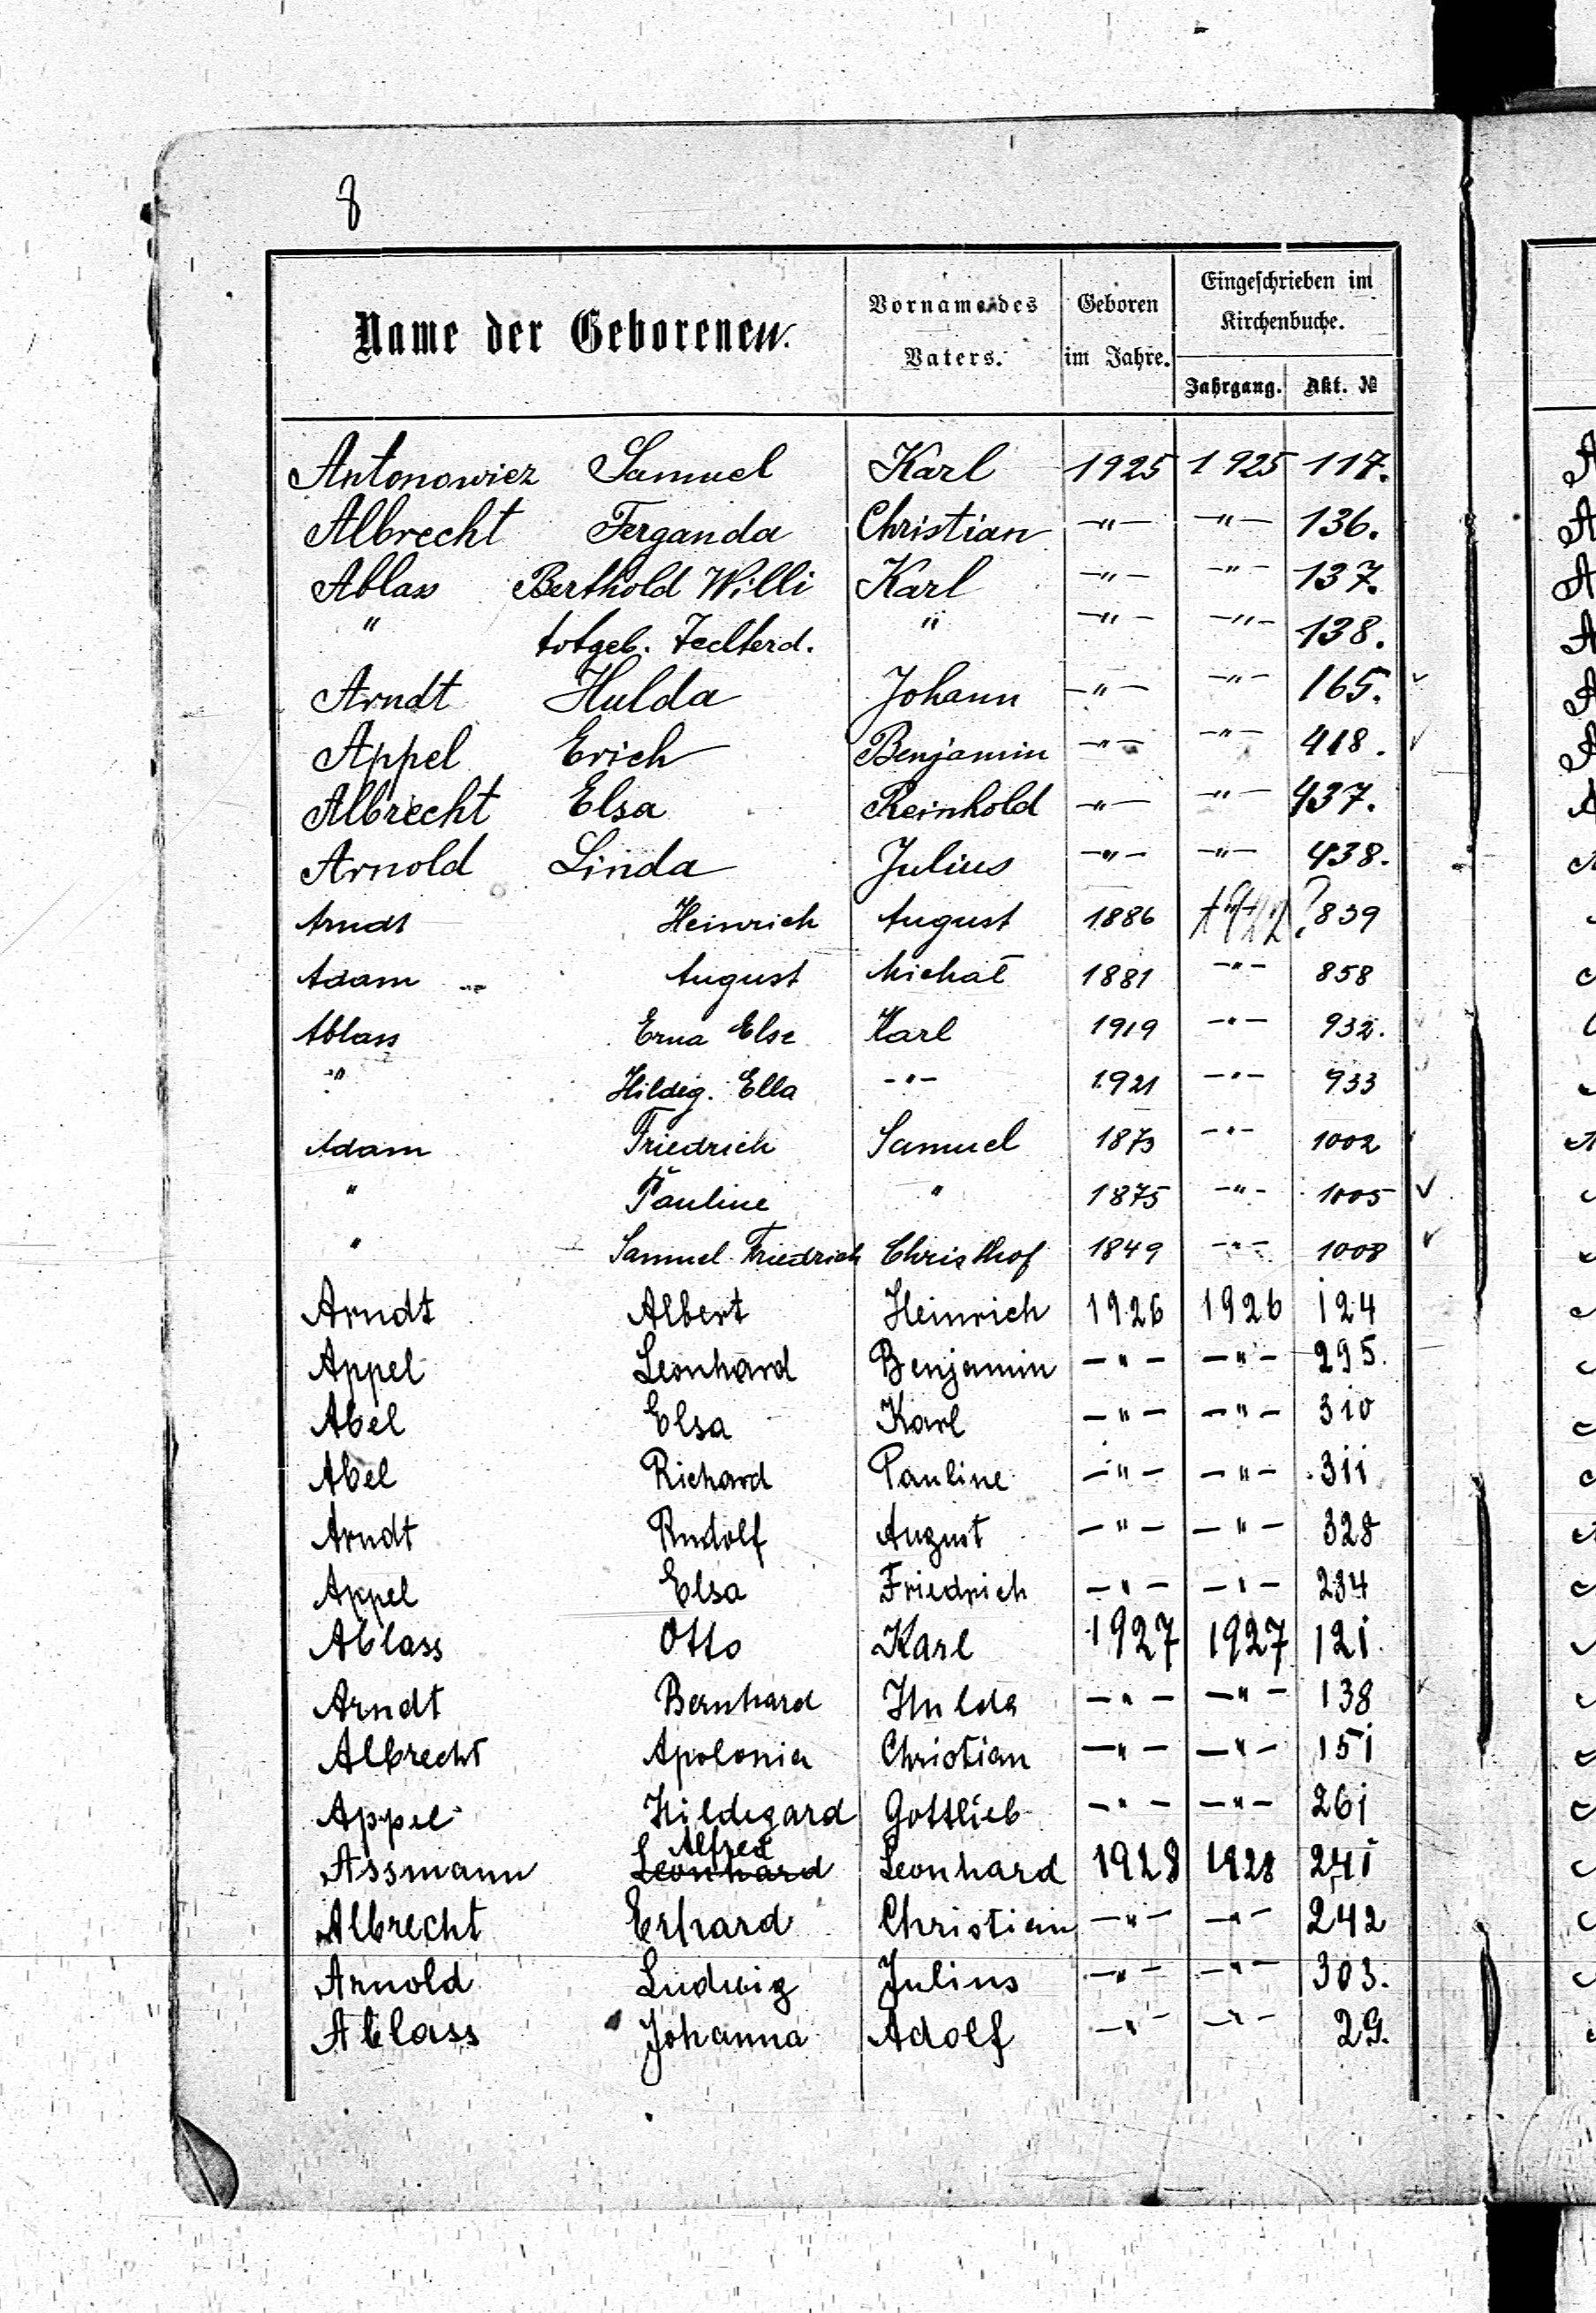 8
Name der Geborenen.
Vorname des Vaters.
Geboren im Jahre.
Eingeschrieben im Kirchenbuche.
Jahrgang. Akt. №
Antonowicz Samuel Karl 1925 1925 117.
Albrecht Ferganda Christian -"- -"- 136.
Ablass Berthold Willi Karl -"- -"- 137.
" totgeb. " -"- -"- 138.
Arndt Hulda Johann -"- -"- 165.
Appel Erich Benjamin -"- -"- 418.
Albrecht Elsa Reinhold -"- -"- 437.
Arnold Linda Julius -"- -"- 438.
Arndt Heinrich August 1886 ? 839
Adam August Michał 1881 -"- 858
Ablass Erna Else Karl 1919 -"- 932.
-"- Hildeg. Ella -"- 1921 -"- 933
Adam Friedrich Samuel 1873 -"- 1002
" Pauline " 1875 -"- 1005
" Samuel Friedrich Christhof 1849 -"- 1008
Arndt Albert Heinrich 1926 1926 124
Appel Leonhard Benjamin -"- -"- 295.
Abel Elsa Karl -"- -"- 310
Abel Richard Pauline -"- -"- 311
Arndt Rudolf August -"- -"- 328
Appel Elsa Friedrich -"- -"- 234
Ablass Otto Karl 1927 1927 121.
Arndt Bernhard Hulda -"- -"- 138
Albrecht Apolonia Christian -"- -"- 151
Appel Hildegard Gottlieb -"- -"- 261
Alfred
Assmann Leonhard Leonhard 1928 1928 241
Albrecht Erhard Christian -"- -"- 242
Arnold Ludwig Julius -"- -"- 303.
Ablass Johanna Adolf -"- -"- 29.